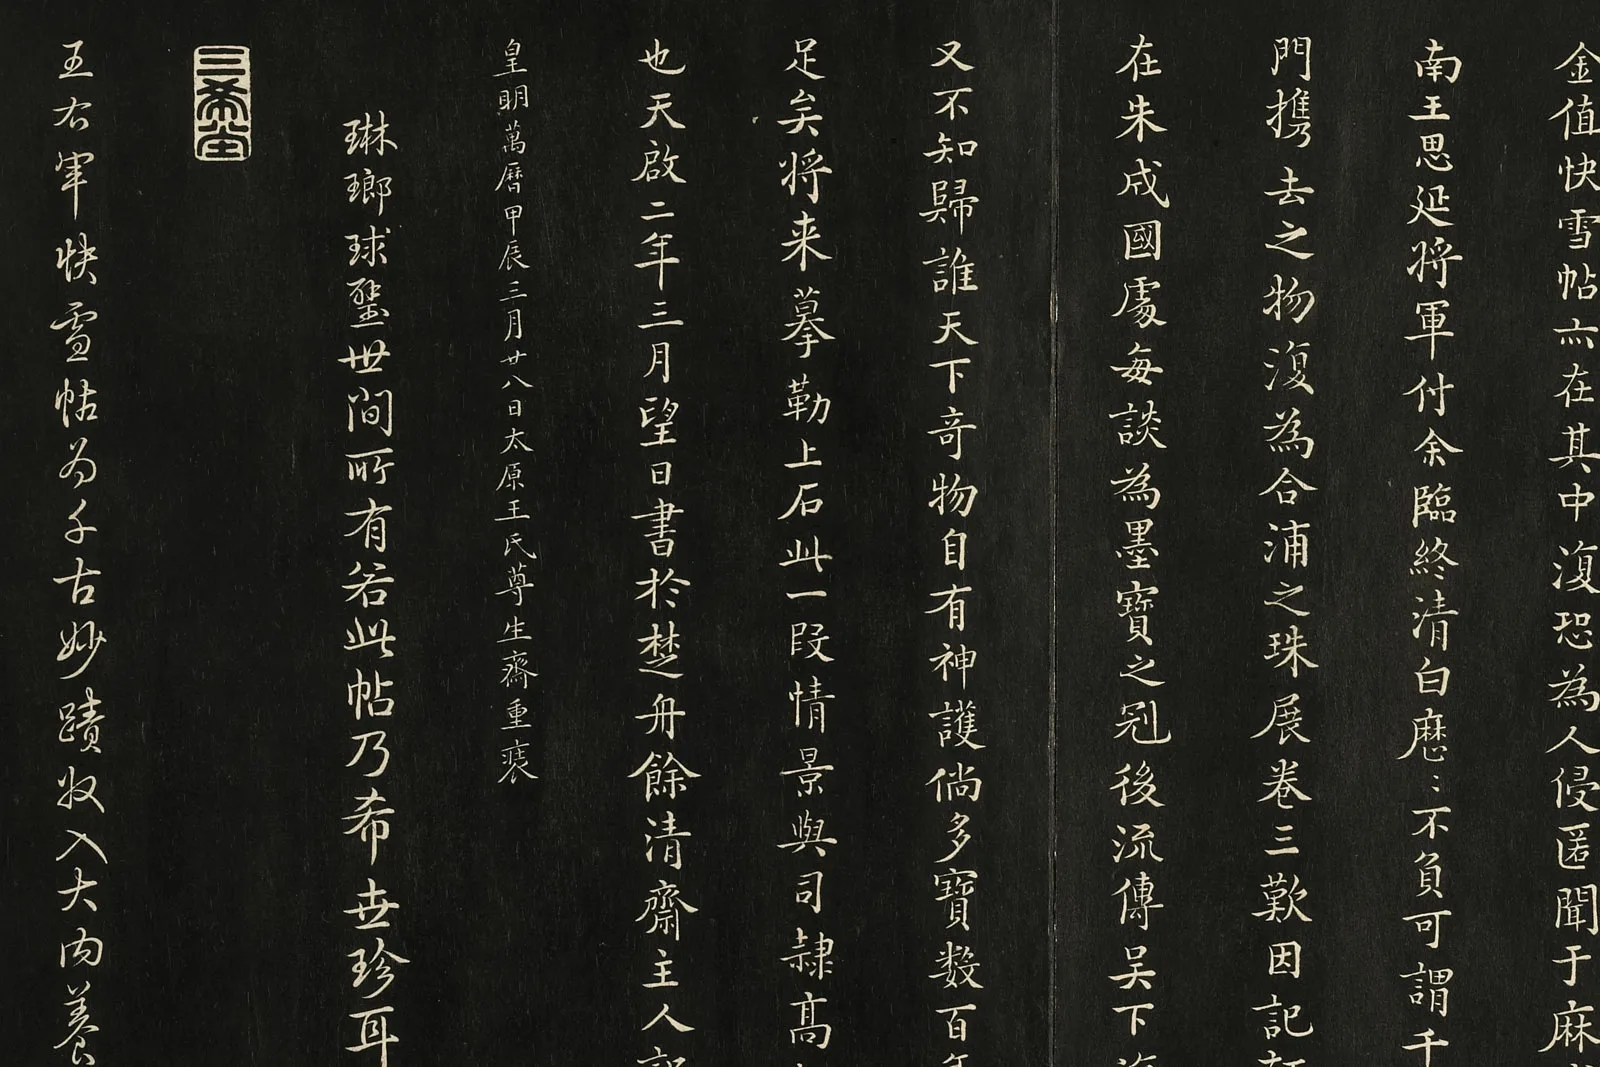 金值快雪帖亦在其中復恐為人侵匿聞于麻
南王思延將軍付余臨終清白歷〻不負可謂千
門攜去之物復為合浦之珠展卷三歎因記
在朱成國處每談為墨寶之冠後流傳吴下
又不知歸誰天下奇物自有神護倘多寶数百年
足矣將来摹勒上石此一段情景與司隷高
也天啟二年三月望日書於楚舟餘清齋主人
皇明萬曆甲辰三月廿八日太原王氏尊生齋重裝
琳瑯球璧世間所有若此帖乃希世珍耳
三希堂
王右軍快雪帖為千古妙蹟收入大內養